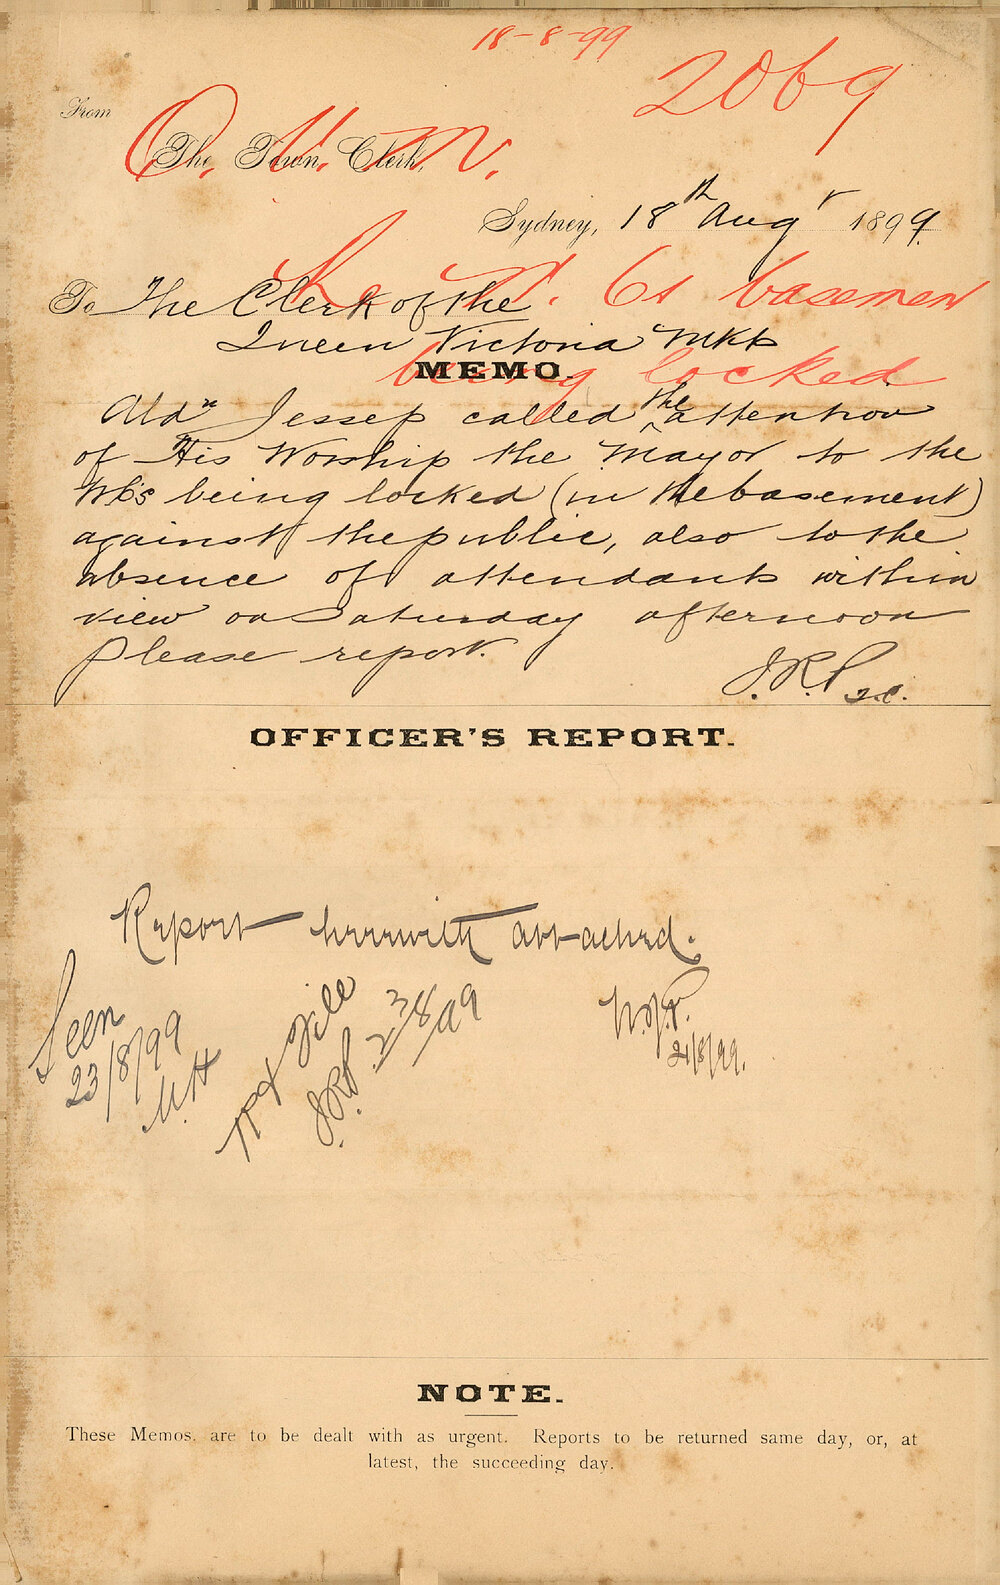 18-8-99
2069
From
The Town Clerk,
Q. V. M.
Sydney, 18th Augt 1899
To The Clerk of the
Queen Victoria Mkts
basemen
being locked
MEMO.
Aldn Jessep called the attention
of His Worship the Mayor to the
WCs being locked (in the basement)
against the public, also to the
absence of attendants within
view on Saturday afternoon
Please report.
J.R.P
OFFICER'S REPORT.
Report herewith attached.
21/8/99.
Seen
23/8/99
M.H
File
J.R.P. 23/8/99
NOTE.
These Memos. are to be dealt with as urgent. Reports to be returned same day, or, at
latest, the succeeding day.